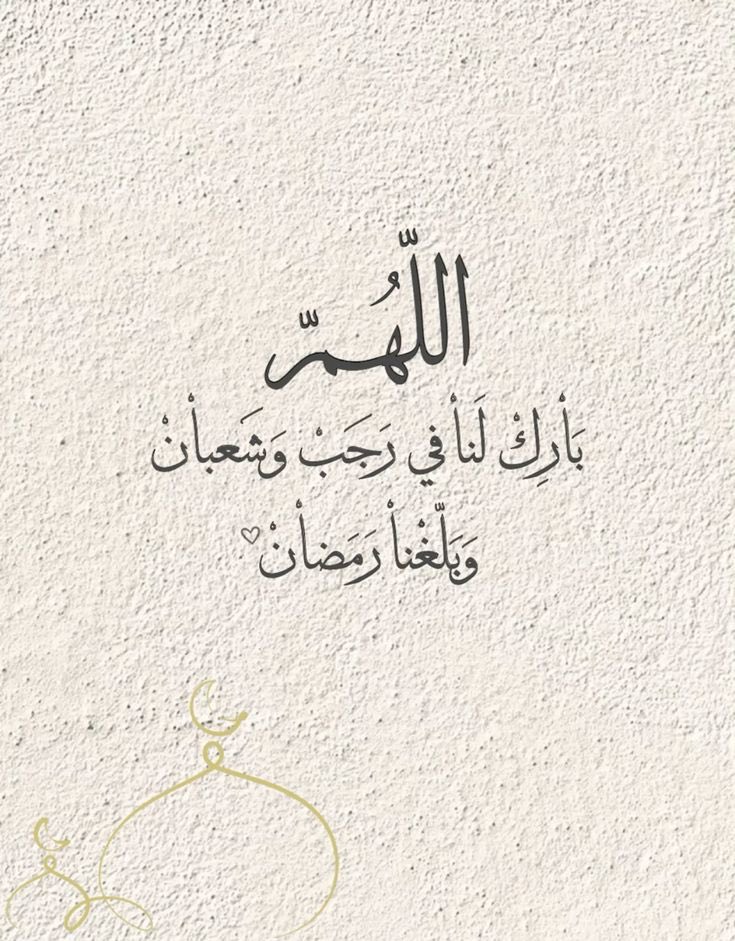 اللَّهُمّ
بَاْرِكْ لَناْ في رَجَبْ وَشَعباْنْ
وَبَلّغْناْ رَمَضاْنْ♡